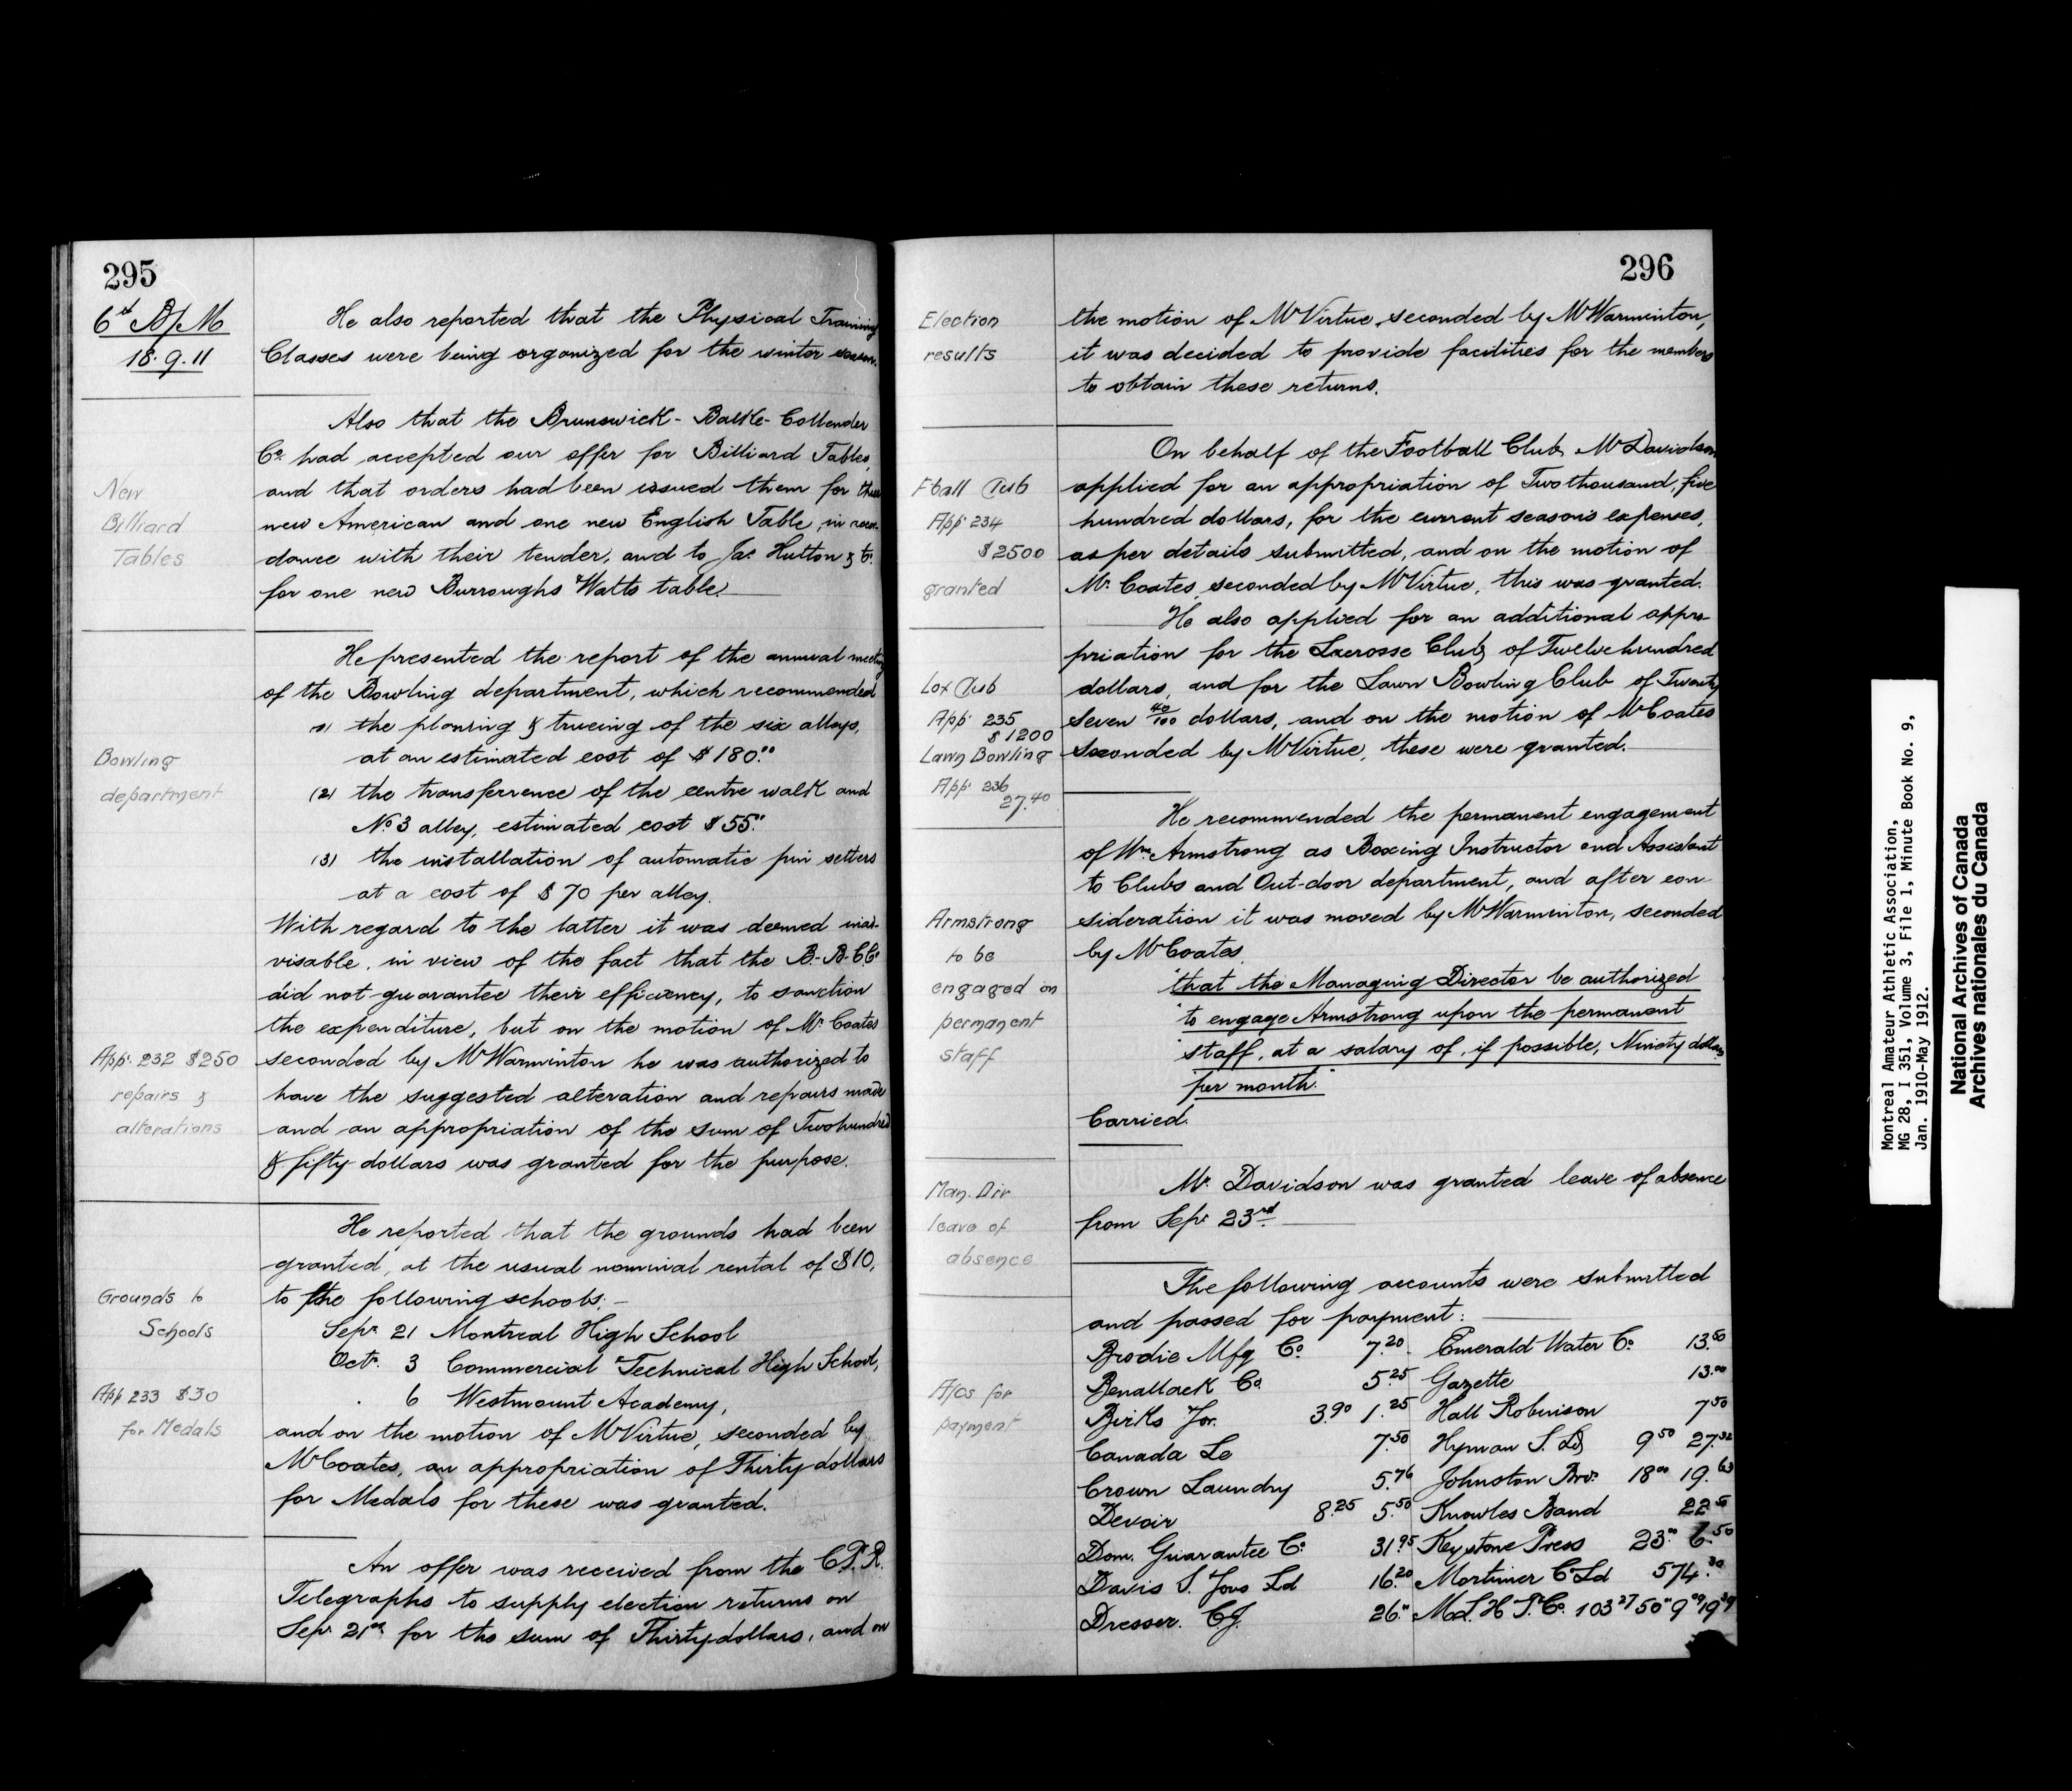 295
6th B/M
18.9.11
He also reported that the Physical Training
Classes were being organized for the winter season.
New
Billiard
Tables
Also that the Brunswick-Balke-Collender
Co. had accepted our offer for Billiard Tables,
and that orders had been issued them for three
new American and one new English Table, in accor-
dance with their tender, and to Jas. Hutton & Co.
for one new Burroughs Watts table.
Bowling
department
He presented the report of the annual meeting
of the Bowling department, which recommended
(1) the planing & trueing of the six alleys,
at an estimated cost of $180.00
(2) the transferrence of the centre walk and
No 3 alley, estimated cost $55.00
(3) the installation of automatic pin setters
at a cost of $70 per alley.
With regard to the latter it was deemed inad-
visable, in view of the fact that the B.-B.-C.Co
did not guarantee their efficiency, to sanction
the expenditure, but on the motion of Mr. Coates
App. 232 $250
repairs &
alterations
seconded by Mr Warminton he was authorized to
have the suggested alteration and repairs made
and an appropriation of the sum of Two hundred
& fifty dollars was granted for the purpose.
Grounds to
Schools
He reported that the grounds had been
granted, at the usual nominal rental of $10,
to the following schools:-
Sepr. 21 Montreal High School
Octr. 3 Commercial & Technical High School,
6 Westmount Academy,
App 233 $30
for Medals
and on the motion of Mr Virtue, seconded by
Mr Coates, an appropriation of Thirty dollars
for Medals for these was granted.
An offer was received from the C.P.R.
Telegraphs to supply election returns on
Sep. 21st for the sum of Thirty dollars, and on
296
Election
results
the motion of Mr Virtue, seconded by Mr Warminton,
it was decided to provide facilities for the members
to obtain these returns.
Fball Club
App. 234
$2500
granted
On behalf of the Football Club, Mr Davidson
applied for an appropriation of Two thousand, five
hundred dollars, for the current season's expenses,
as per details submitted, and on the motion of
Mr. Coates, seconded by Mr Virtue, this was granted.
Lox Club
App. 235
$1200
Lawn Bowling
App. 236
27.40
He also applied for an additional appro-
priation for the Lacrosse Club, of Twelve hundred
dollars, and for the Lawn Bowling Club of Twenty
seven 40/100 dollars, and on the motion of Mr Coates
seconded by Mr Virtue, these were granted.
Armstrong
to be
engaged on
permanent
staff
He recommended the permanent engagement
of Wm. Armstrong as Boxing Instructor and Assistant
to Clubs and Out-door department, and after con-
sideration it was moved by Mr Warminton, seconded
by Mr Coates,
"that the Managing Director be authorized
"to engage Armstrong upon the permanent
"staff, at a salary of, if possible, Ninety dollars
per month."
Carried.
Man. Dir
leave of
absence
Mr. Davidson was granted leave of absence
from Sepr. 23rd.
A/cs for
payment
The following accounts were submitted
and passed for payment:
Brodie Mfg Co. 7.20 Emerald Water Co. 13.50
Benallack Co. 5.25 Gazette 13.00
Birks 3.90 1.25 Hall Robinson 7.50
Canada Le 7.50 Hyman S. Ld 9.50 27.32
Crown Laundry 5.76 Johnston Bros. 18.00 19.63
Devoir 8.25 5.50 Knowles Band 22.50
Dom. Guarantee Co. 31.95 Keystone Press 23.00 6.50
Davis S. Sons Ld 16.20 Mortimer Co Ld 574.30
Dresser. C.J. 26.00 M.L.H.P.Co. 103.27 50.00 9.00 19.39
Montreal Amateur Athletic Association,
MG 28, I 351, Volume 3, File 1, Minute Book No. 9,
Jan. 1910-May 1912.
National Archives of Canada
Archives nationales du Canada